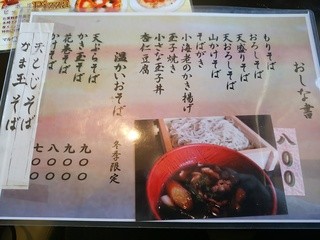 おしな書
もりそば
おろしそば
天盛りそば
天おろしそば
山かけそば
そばがき
小海老のかき揚げ
玉子焼き
小さな玉子丼
杏仁豆腐
温かいおそば
冬季限定
天ぷらそば
かき玉そば
花巻そば
かけそば
九〇〇
九〇〇
八〇〇
七〇〇
天とじそば
かま玉そば
八〇〇